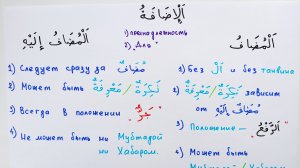 اَلْإِضَافَةُ
1) принадлежность
2) Для
اَلْمُضَافُ إِلَيْهِ
اَلْمُضَافُ
1) Следует сразу за مُضَافٌ
2) Может быть نَكِرَةٌ / مَعْرِفَةٌ
3) Всегда в положении جَرٌّ
4) Не может быть ни Мубтадаи
ни Хабаром.
1) Без اَلْ и без танвина
2) نَكِرَةٌ / مَعْرِفَةٌ зависит
от مُضَافٌ إِلَيْهِ
3) Положение – اَلرَّفْعُ
4) Может быть